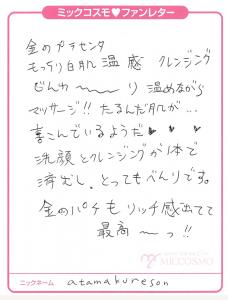 ミックコスモ♥ファンレター
金のプラセンタ
もっちり白肌 温 感 クレンジング
じんわ〜〜り 温めながら
マッサージ!! たるんだ肌が…
喜こんでいるようだ♥ ♥ ♥
洗顔とクレンジングが1本で
済むし、とってもべんりです。
金のパケも リッチ感出てて
最高〜っ!!
MICCOSMO
ニックネーム atamabureson